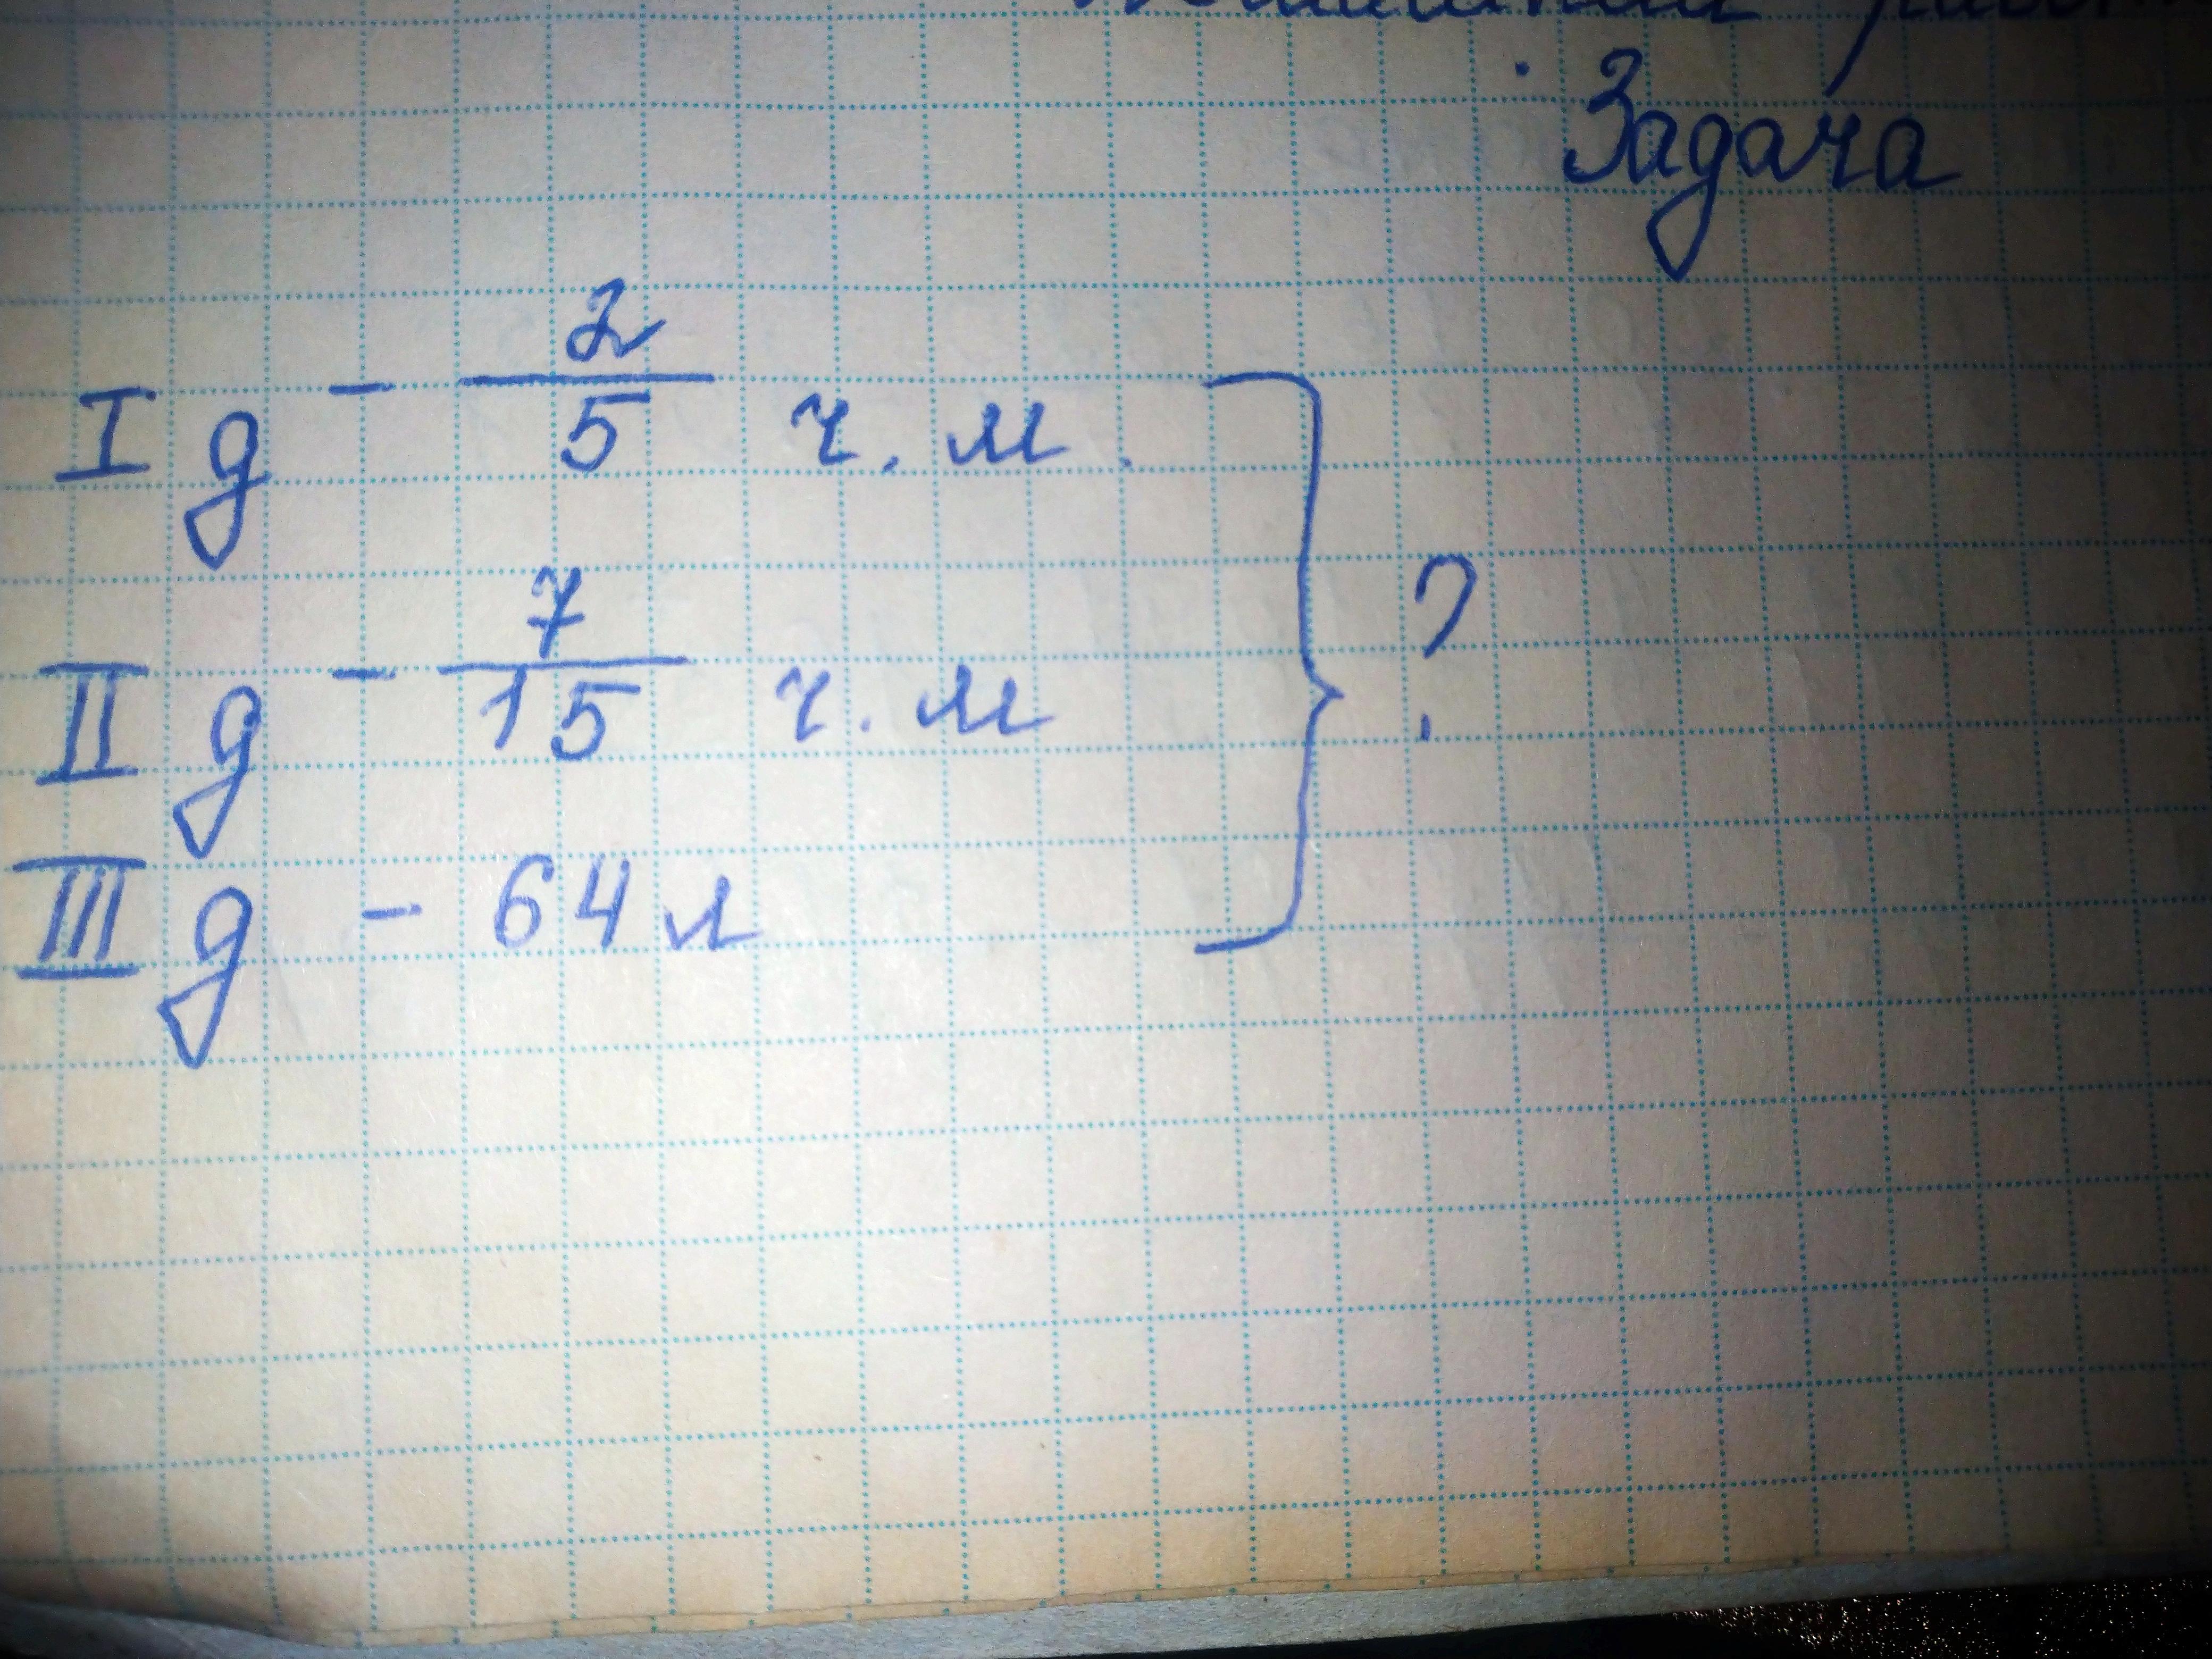 Задача
I д - 2/5 ч. м.
II д - 7/15 ч. м
III д - 64 л
?